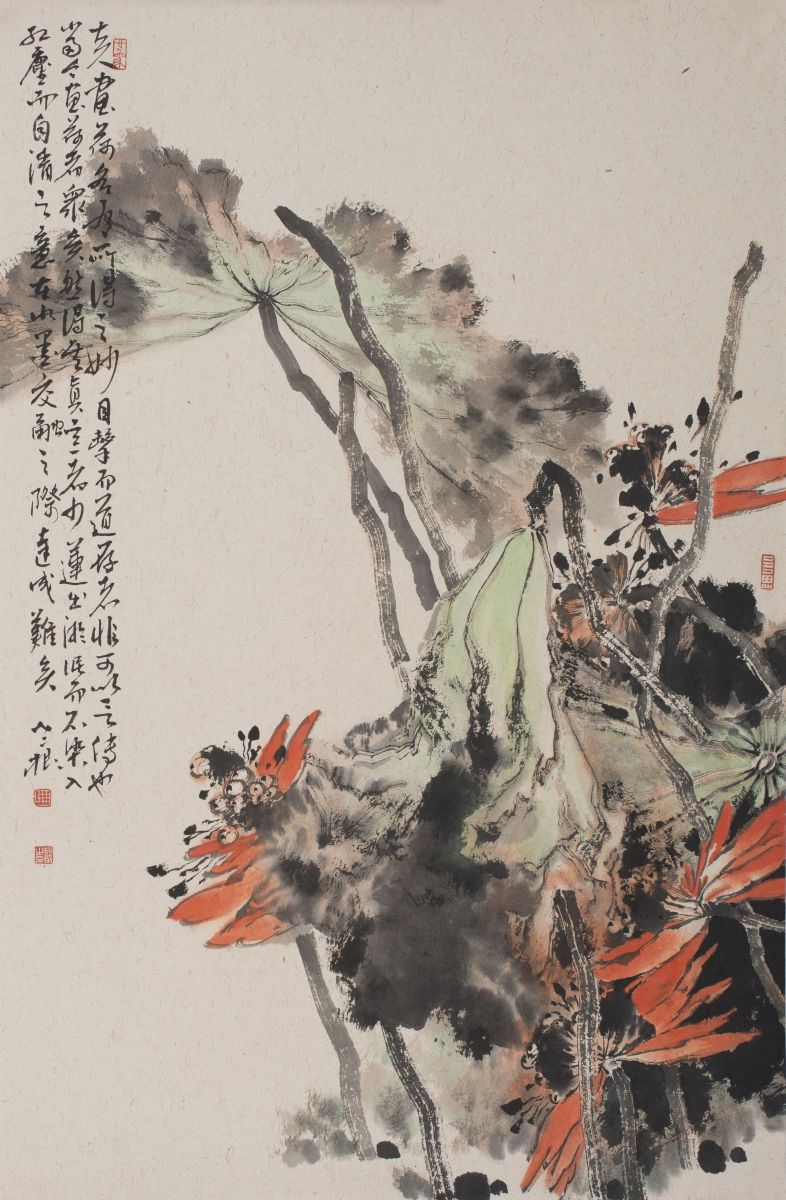 古人畫荷各有所得之妙目擊而道存者非可以言傳也
當今畫荷者眾矣然得其真意者少蓮出淤泥而不染入
紅塵而自清之意在水墨交融之際達成難矣